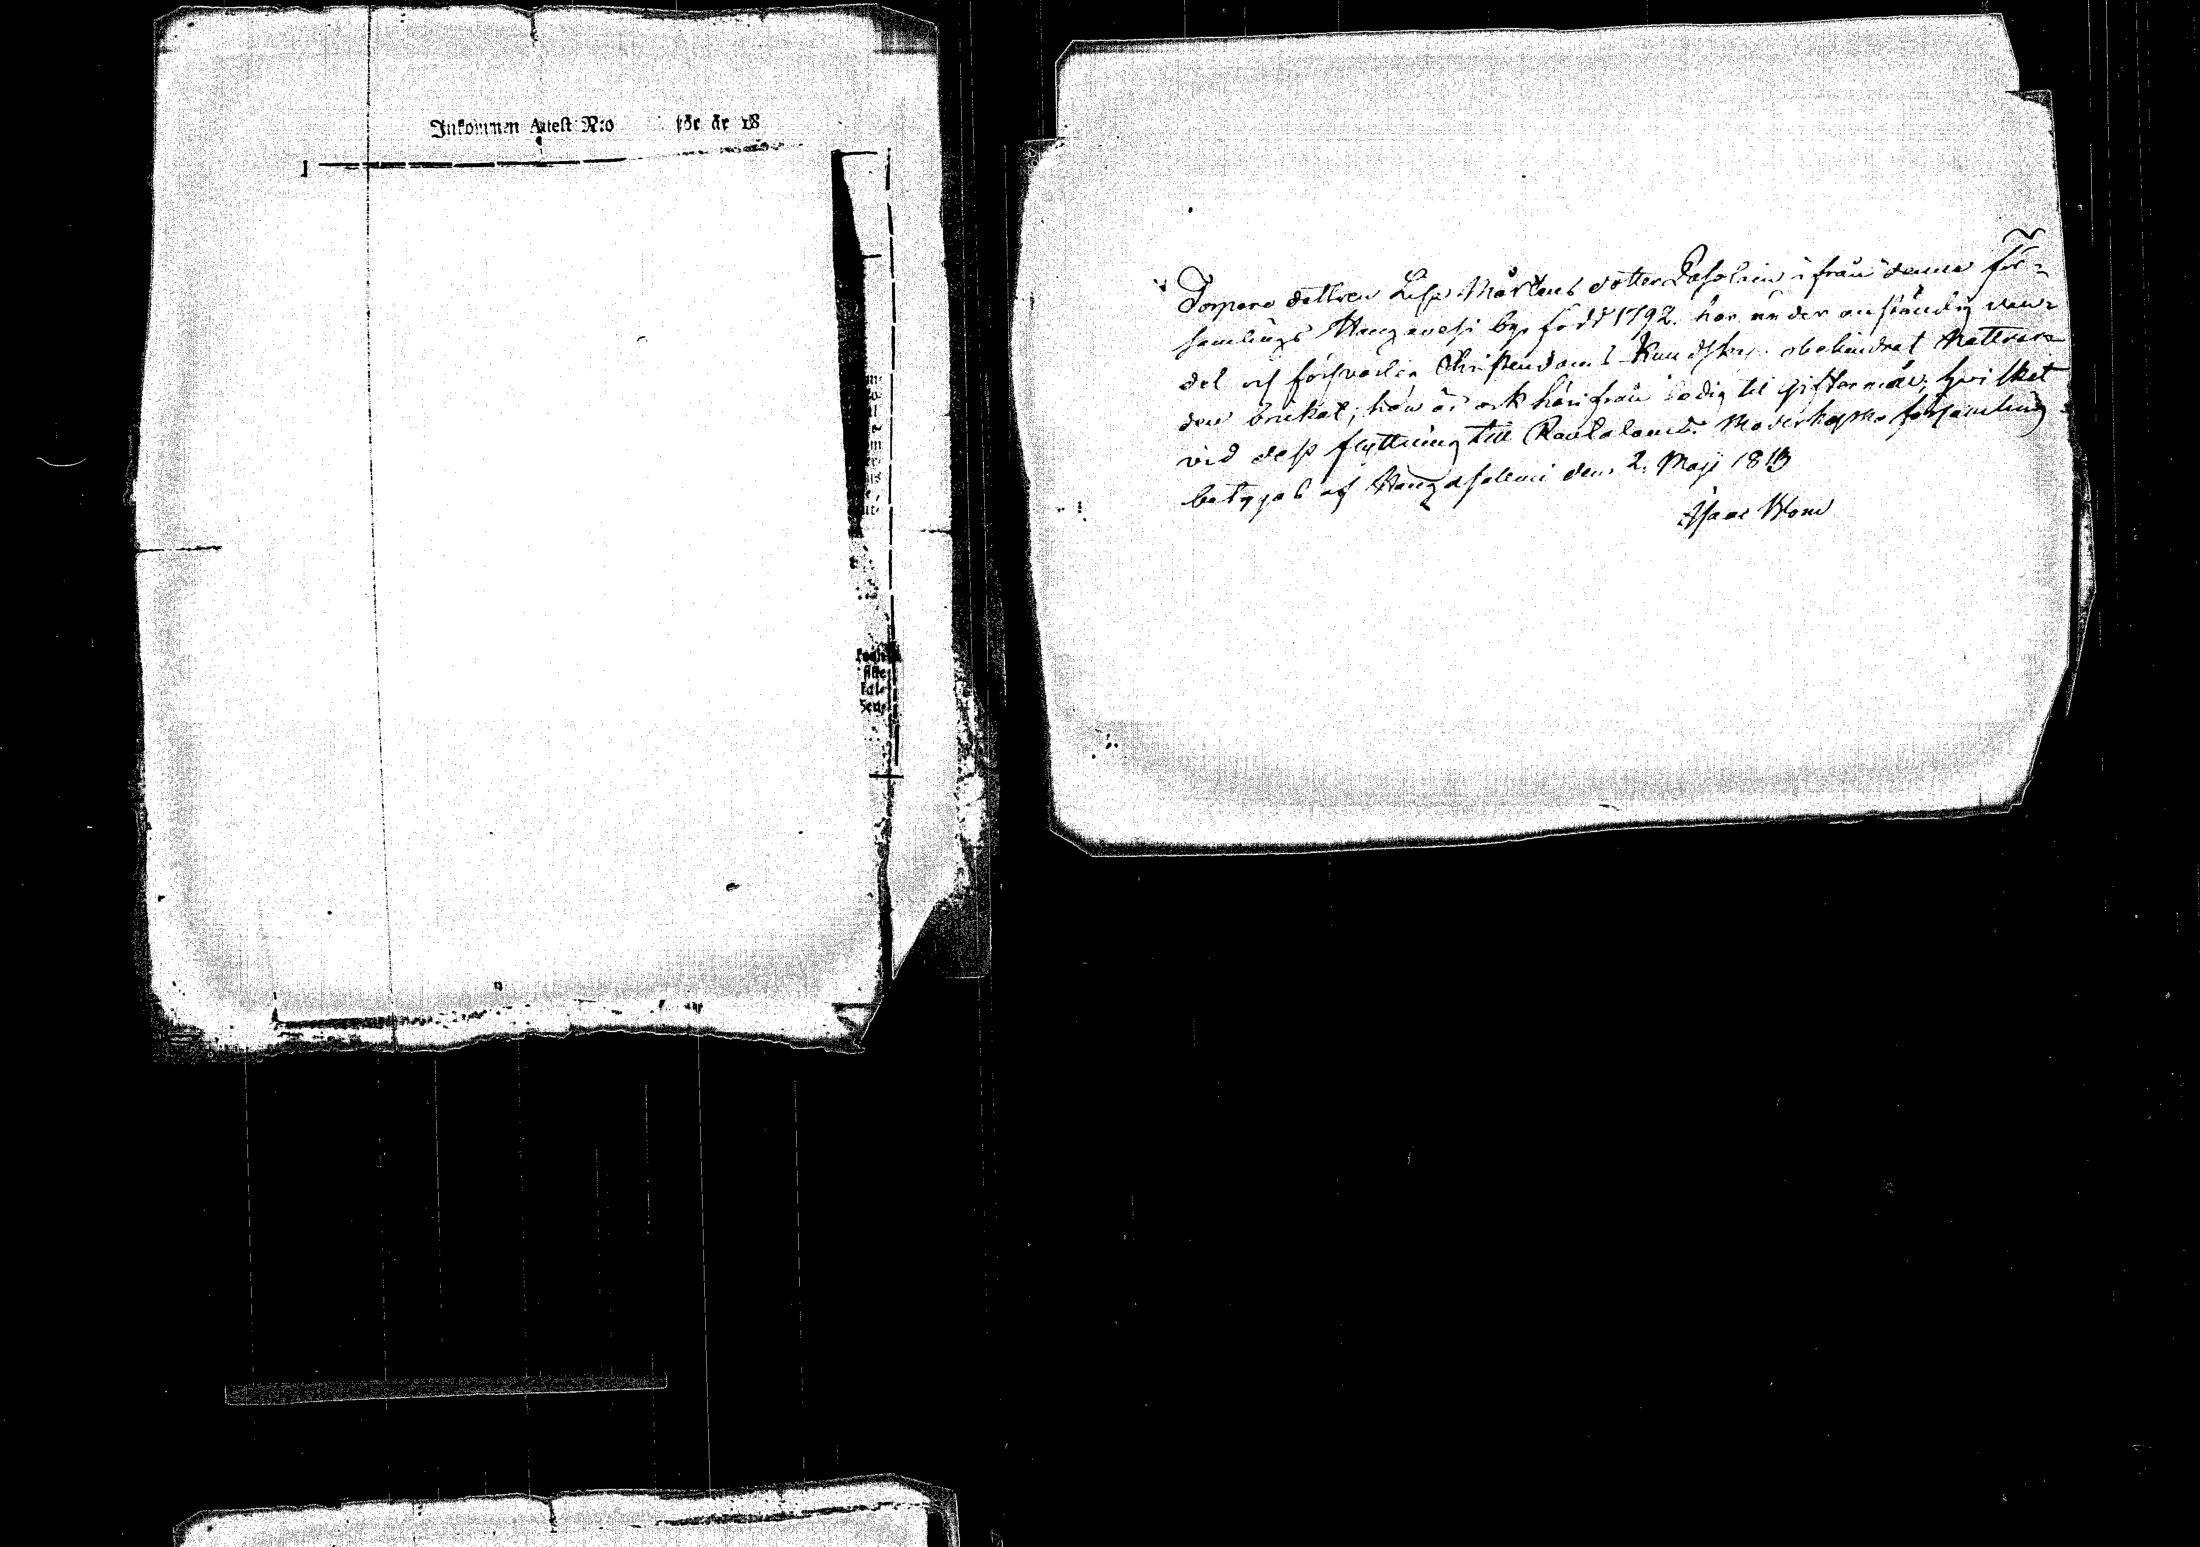 Inkommen Attest N:o för år 18
Torpare dottren Lisa Mårtens dotter Lasolain i från denne för-
samlings Hangavesi by, född 1792. har under anständig van-
del och försvarlig Christendoms Kundskap obehindrat Nattvar-
den brukat; hon är ock härifrån ledig til giftermåls; hvilket
vid dess flyttning till Rautalambi Moderkyrko församling
betygas af Hangasalmi den 2. Maji 1813
Isaac Blom